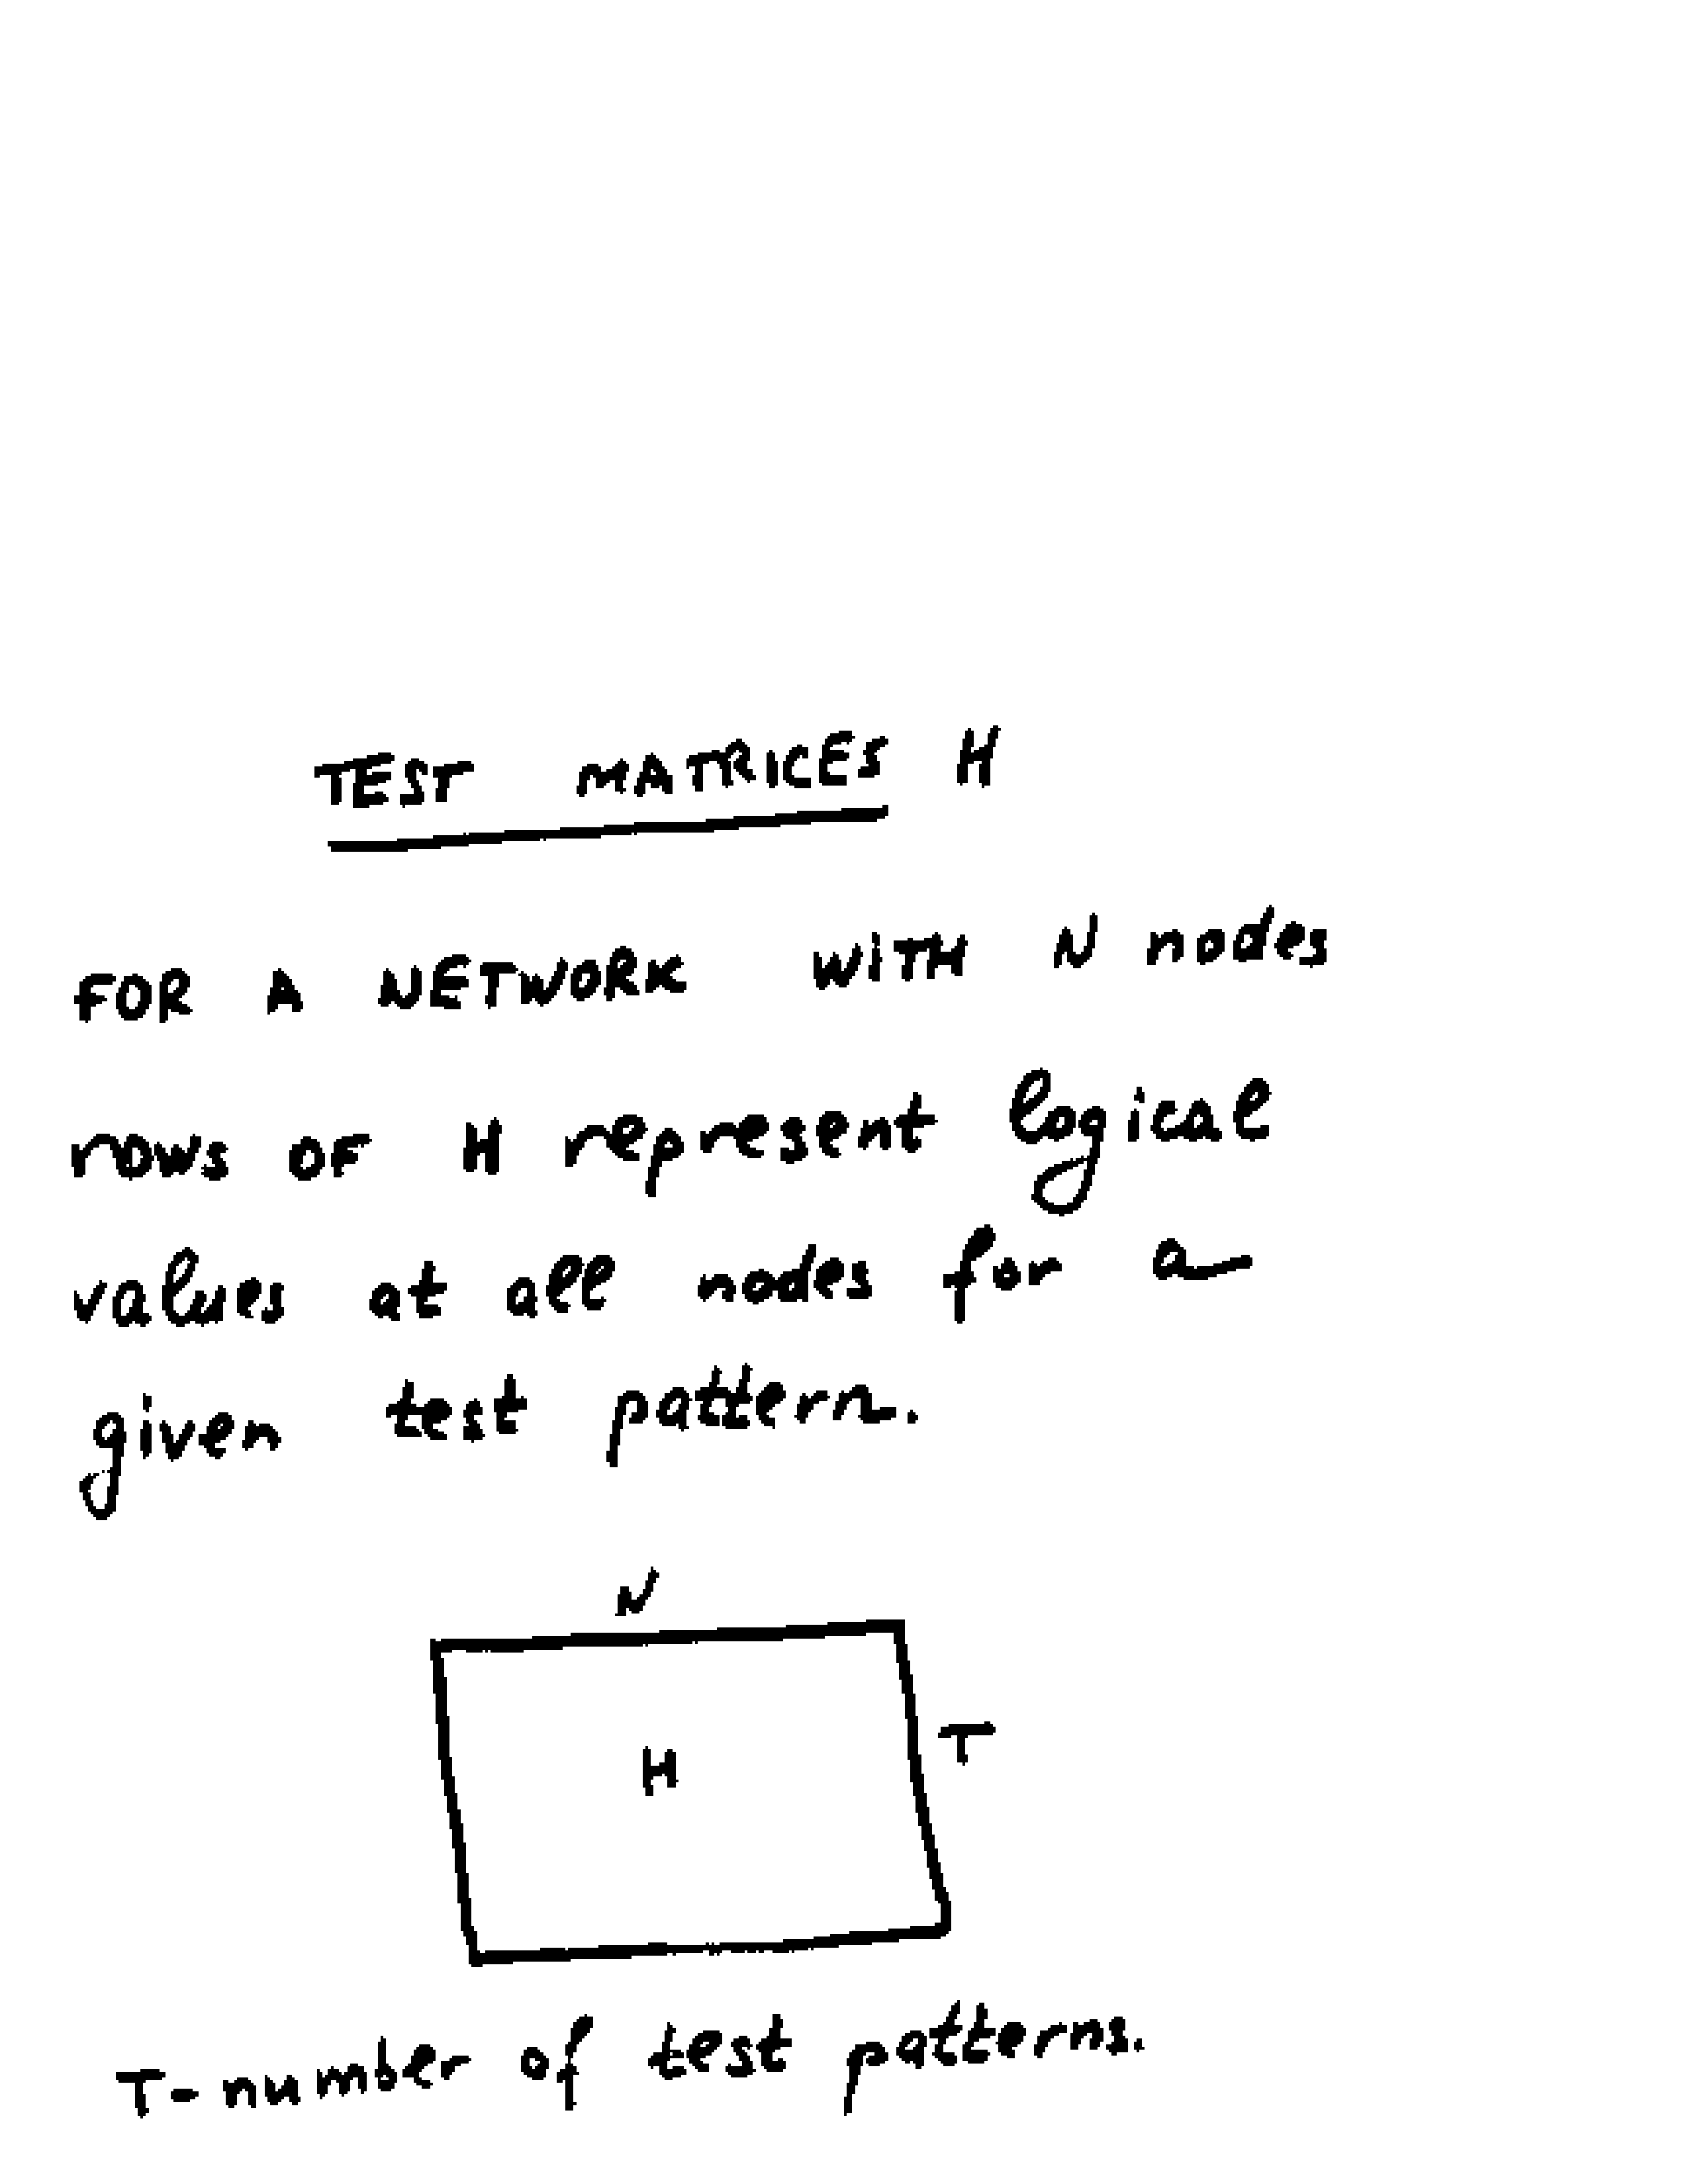 TEST MATRICES H
FOR A NETWORK WITH N nodes
rows OF H represent logical
values at all nodes for a
given test pattern.
N
H
T
T-number of test patterns.